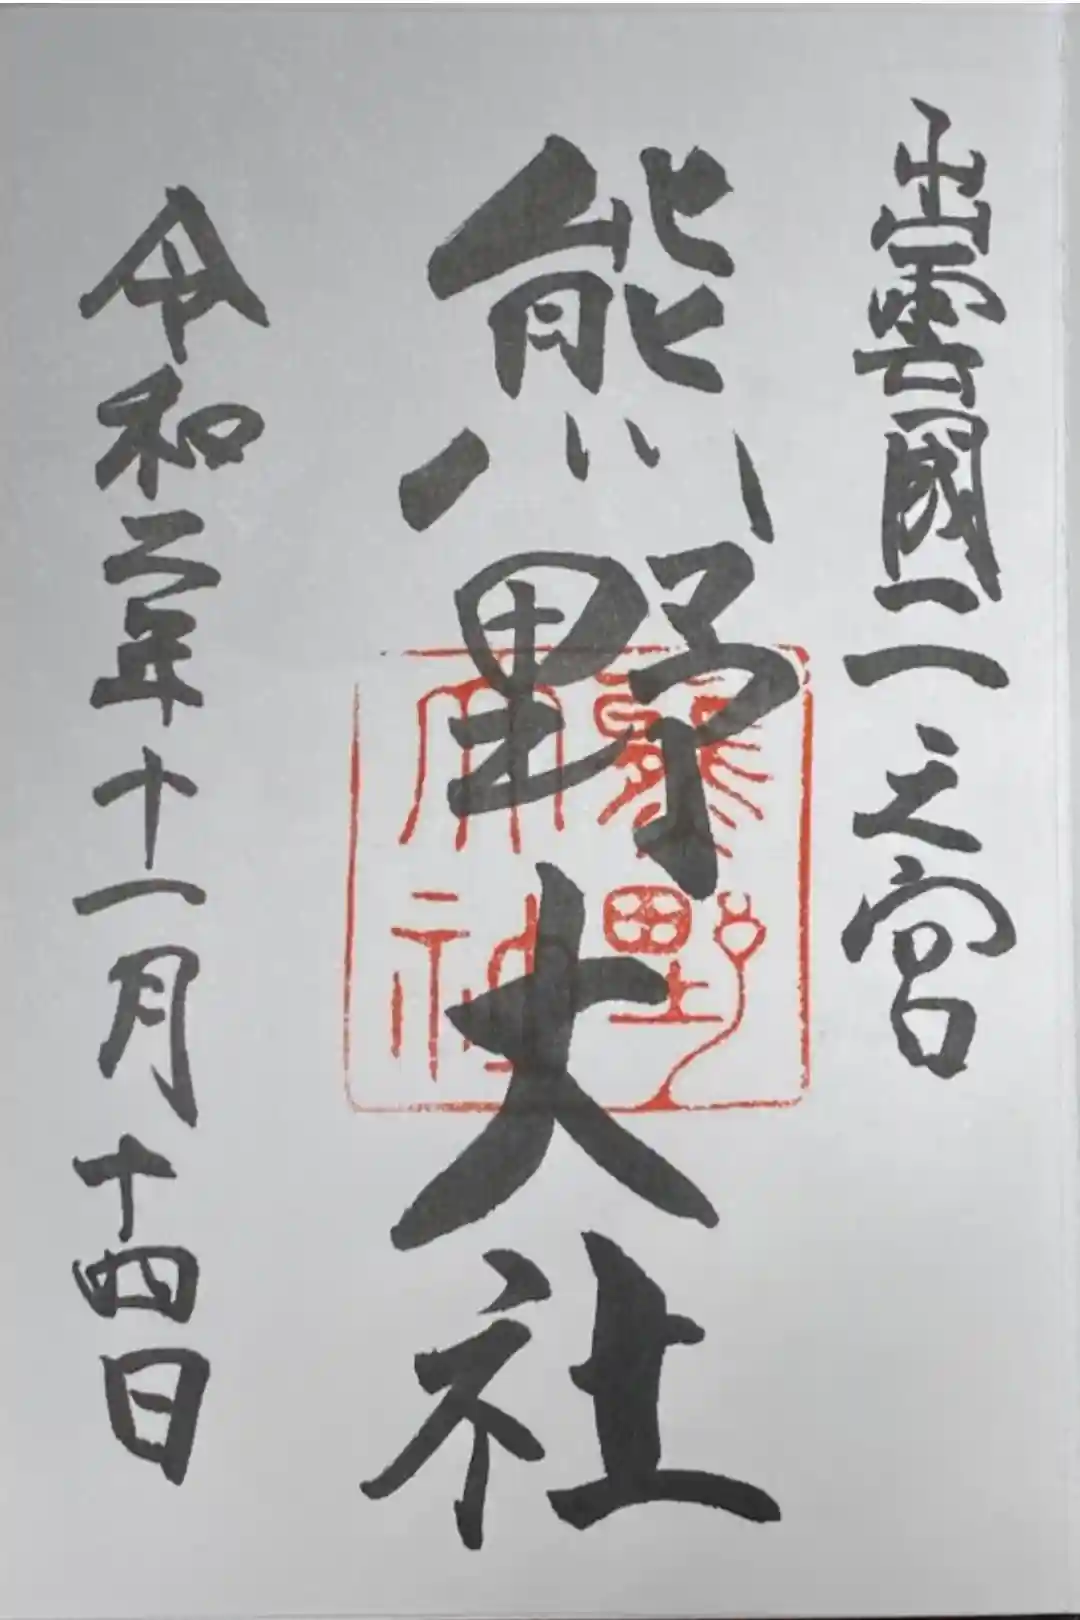 出雲國一之宮
熊野大社
令和二年十一月十四日
熊野
大